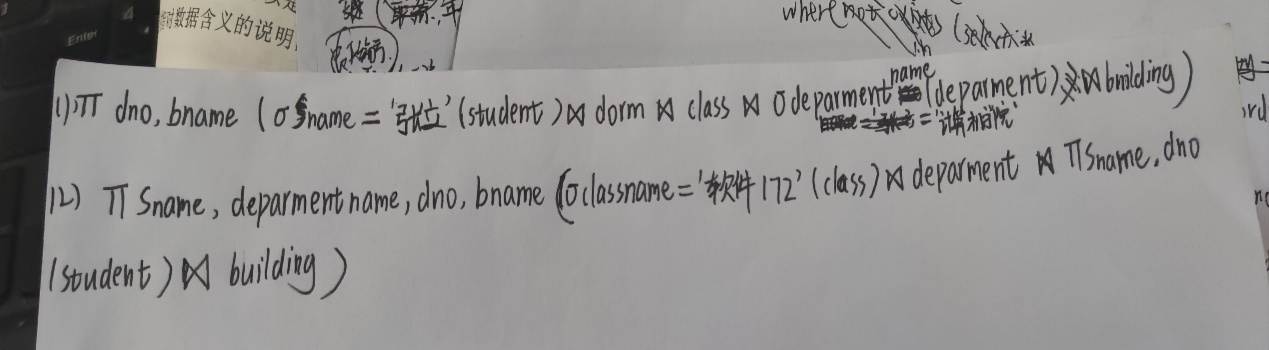 Enter
树数据含义的说明
where not exists (select *
in
(1) π dno, bname (σ sname = '张立' (student) ⋈ dorm ⋈ class ⋈ σ deparment name (deparment) ⋈ building)
= '计算机学院'
(2) π Sname, deparment name, dno, bname (σ classname = '软件172' (class) ⋈ deparment ⋈ π Sname, dno
(student) ⋈ building)